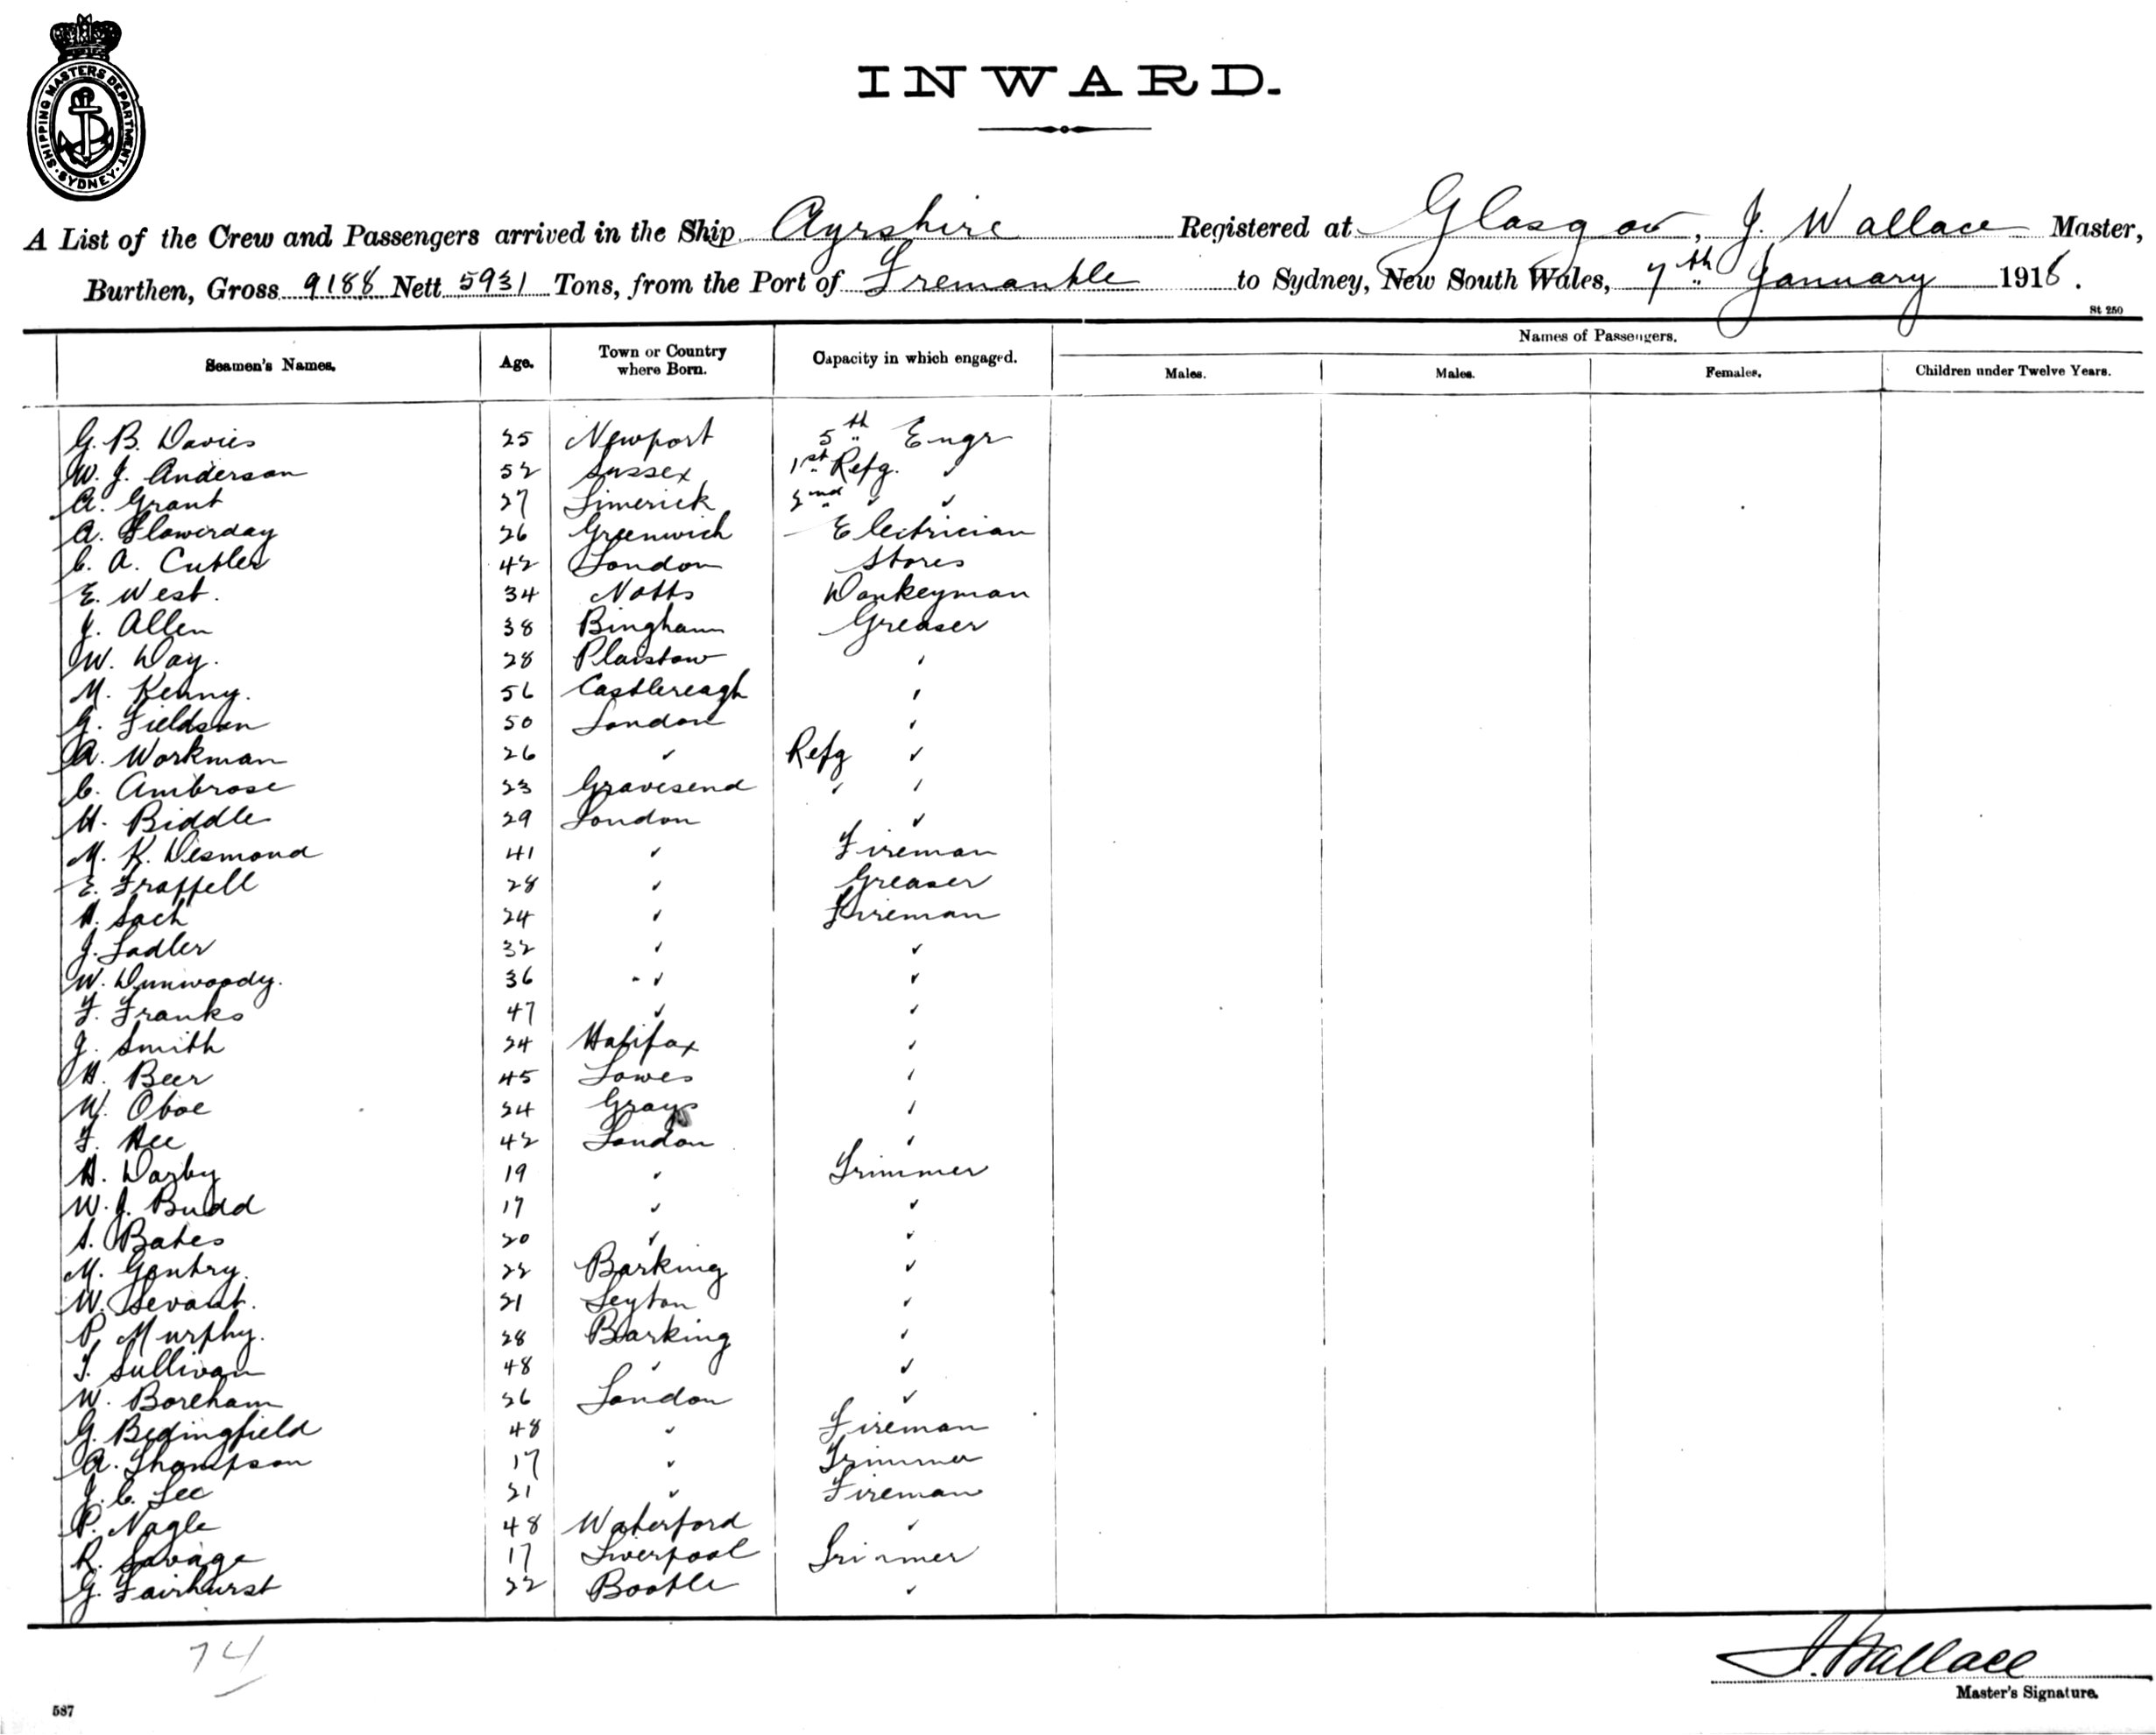 SHIPPING MASTERS DEPARTMENT. SYDNEY.
INWARD.
A List of the Crew and Passengers arrived in the Ship Ayrshire Registered at Glasgow, J. Wallace Master,
Burthen, Gross 9188 Nett 5931 Tons, from the Port of Fremantle to Sydney, New South Wales, 7th January 1918.
St 250
Names of Passengers.
Seamen's Names. Age. Town or Country where Born. Capacity in which engaged. Males. Males. Females. Children under Twelve Years.
G. B. Davies 25 Newport 5th Engr
W. J. Anderson 52 Sussex 1st Refg. ✓
A. Grant 27 Limerick 2nd ✓ ✓
A. Flowerday 26 Greenwich Electrician
C. A. Cutler 42 London Stores
E. West. 34 Notts Donkeyman
J. Allen 38 Bingham Greaser
W. Day. 28 Plaistow ✓
M. Kenny. 56 Castlereagh ✓
G. Fieldsen 50 London ✓
A. Workman 26 ✓ Refg ✓
C. Ambrose 23 Gravesend ✓ ✓
H. Biddle 29 London ✓
M. K. Desmond 41 ✓ Fireman
E. Fraffell 28 ✓ Greaser
H. Sach 24 ✓ Fireman
J. Sadler 32 ✓ ✓
W. Dunwoody. 36 ✓ ✓
F. Franks 47 ✓ ✓
J. Smith 24 Halifax ✓
H. Beer 45 Lowes ✓
W. Oboe 24 Grays ✓
F. Hee 42 London ✓
H. Darby 19 ✓ Trimmer
W. J. Budd 17 ✓ ✓
S. Bates 20 ✓ ✓
M. Gentry. 22 Barking ✓
W. Levant. 21 Leyton ✓
P. Murphy. 28 Barking ✓
T. Sullivan 48 ✓ ✓
W. Boreham 26 London ✓
G. Bedingfield 48 ✓ Fireman
A. Thompson 17 ✓ Trimmer
J. C. Lee 21 ✓ Fireman
P. Nagle 48 Waterford ✓
R. Savage 17 Liverpool Trimmer
G. Fairhurst 22 Bootle ✓
74
J. Wallace
Master's Signature.
587